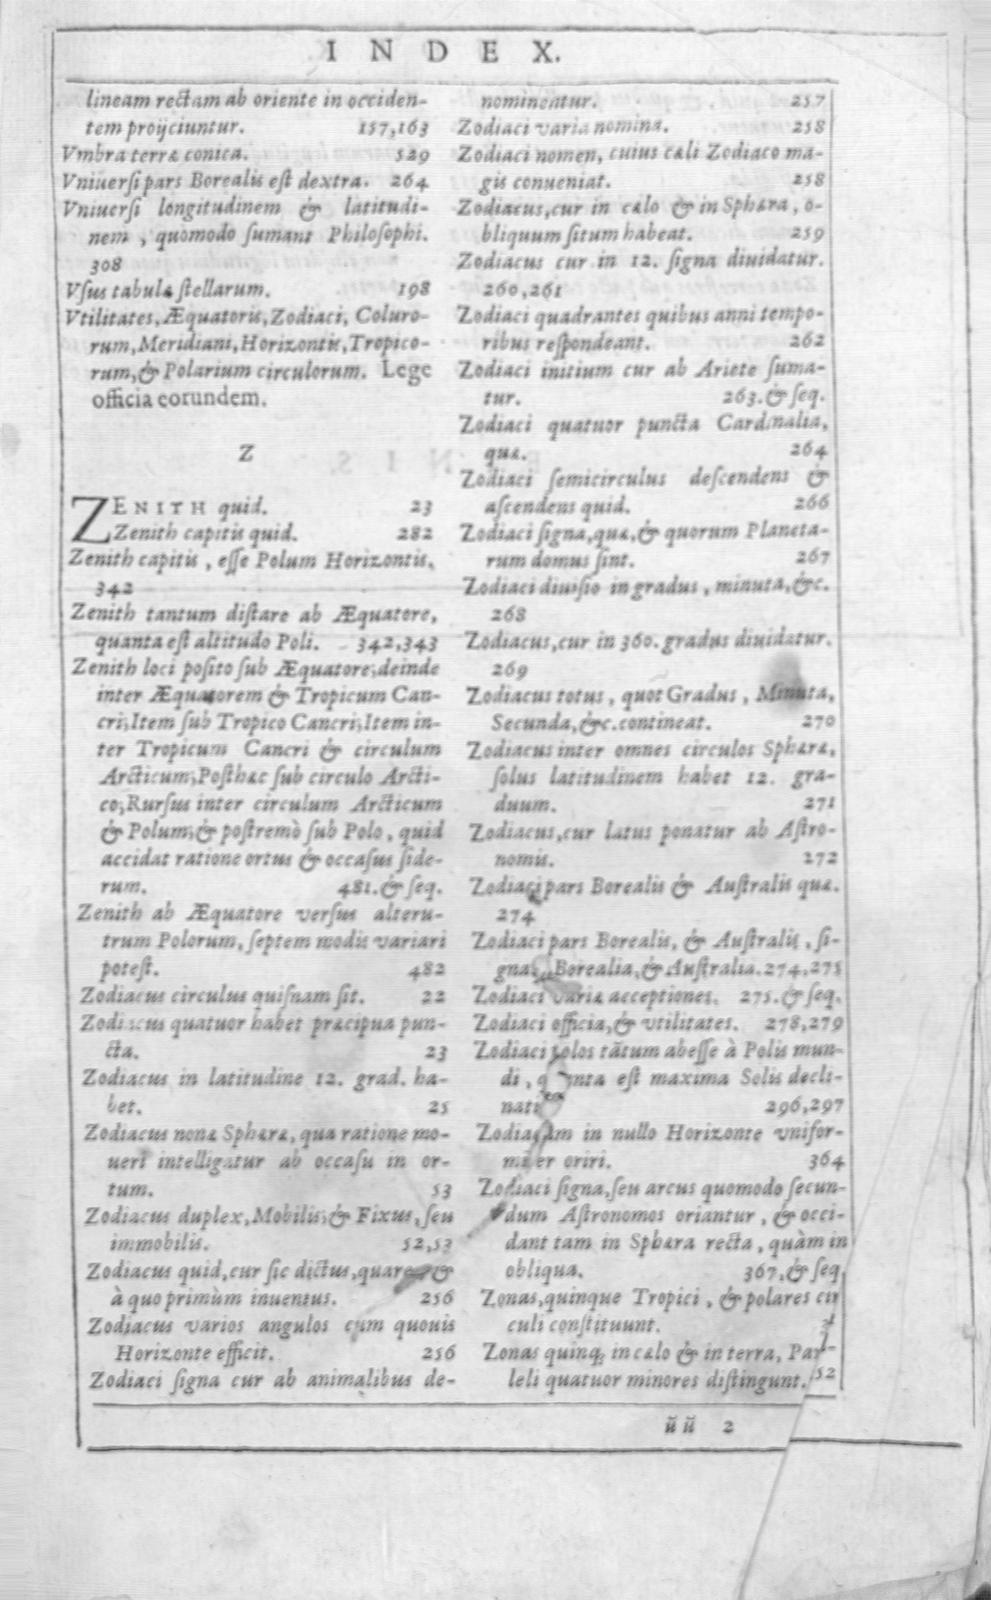 INDEX.
lineam rectam ab oriente in occiden-
tem proijciuntur. 157,163
Vmbra terræ conica. 529
Vniuersi pars Borealis est dextra. 264
Vniuersi longitudinem & latitudi-
nem, quomodo sumant Philosophi.
308
Vsus tabulæ stellarum. 198
Vtilitates, Æquatoris, Zodiaci, Coluro-
rum, Meridiani, Horizontis, Tropico-
rum, & Polarium circulorum. Lege
officia eorundem.
Z
ZENITH quid. 23
Zenith capitis quid. 282
Zenith capitis, esse Polum Horizontis.
342
Zenith tantum distare ab Æquatore,
quanta est altitudo Poli. 342,343
Zenith loci posito sub Æquatore; deinde
inter Æquatorem & Tropicum Can-
cri; Item sub Tropico Cancri; Item in-
ter Tropicum Cancri & circulum
Arcticum; Posthæc sub circulo Arcti-
co; Rursus inter circulum Arcticum
& Polum; & postremò sub Polo, quid
accidat ratione ortus & occasus side-
rum. 481. & seq.
Zenith ab Æquatore versus alteru-
trum Polorum, septem modis variari
potest. 482
Zodiacus circulus quisnam sit. 22
Zodiacus quatuor habet præcipua pun-
cta. 23
Zodiacus in latitudine 12. grad. ha-
bet. 25
Zodiacus nonæ Sphæræ, qua ratione mo-
ueri intelligatur ab occasu in or-
tum. 53
Zodiacus duplex, Mobilis; & Fixus, seu
immobilis. 52,53
Zodiacus quid, cur sic dictus, quare, &
à quo primùm inuentus. 256
Zodiacus varios angulos cum quouis
Horizonte efficit. 256
Zodiaci signa cur ab animalibus de-
nomineatur. 257
Zodiaci varia nomina. 258
Zodiaci nomen, cuius cæli Zodiaco ma-
gis conueniat. 258
Zodiacus, cur in cælo & in Sphæra, o-
bliquum situm habeat. 259
Zodiacus cur in 12. signa diuidatur.
260,261
Zodiaci quadrantes quibus anni tempo-
ribus respondeant. 262
Zodiaci initium cur ab Ariete suma-
tur. 263. & seq.
Zodiaci quatuor puncta Cardinalia,
quæ. 264
Zodiaci semicirculus descendens &
ascendens quid. 266
Zodiaci signa, quæ, & quorum Planeta-
rum domus sint. 267
Zodiaci diuisio in gradus, minuta, &c.
268
Zodiacus, cur in 360. gradus diuidatur.
269
Zodiacus totus, quot Gradus, Minuta,
Secunda, &c. contineat. 270
Zodiacus inter omnes circulos Sphæræ,
solus latitudinem habet 12. gra-
duum. 271
Zodiacus, cur latus ponatur ab Astro-
nomis. 272
Zodiaci pars Borealis & Australis quæ.
274
Zodiaci pars Borealis, & Australis, si-
gna Borealia, & Australia. 274,275
Zodiaci variæ acceptiones. 275. & seq.
Zodiaci officia, & vtilitates. 278,279
Zodiaci Polos tātum abesse à Polis mun-
di, quanta est maxima Solis decli-
nati 296,297
Zodiacum in nullo Horizonte vnifor-
miter oriri. 364
Zodiaci signa, seu arcus quomodo secun-
dum Astronomos oriantur, & occi-
dant tam in Sphæra recta, quàm in
obliqua. 367, & seq.
Zonas, quinque Tropici, & polares cir
culi constituunt.
Zonas quinq; in cælo & in terra, Par-
leli quatuor minores distingunt. 52
ũũ 2